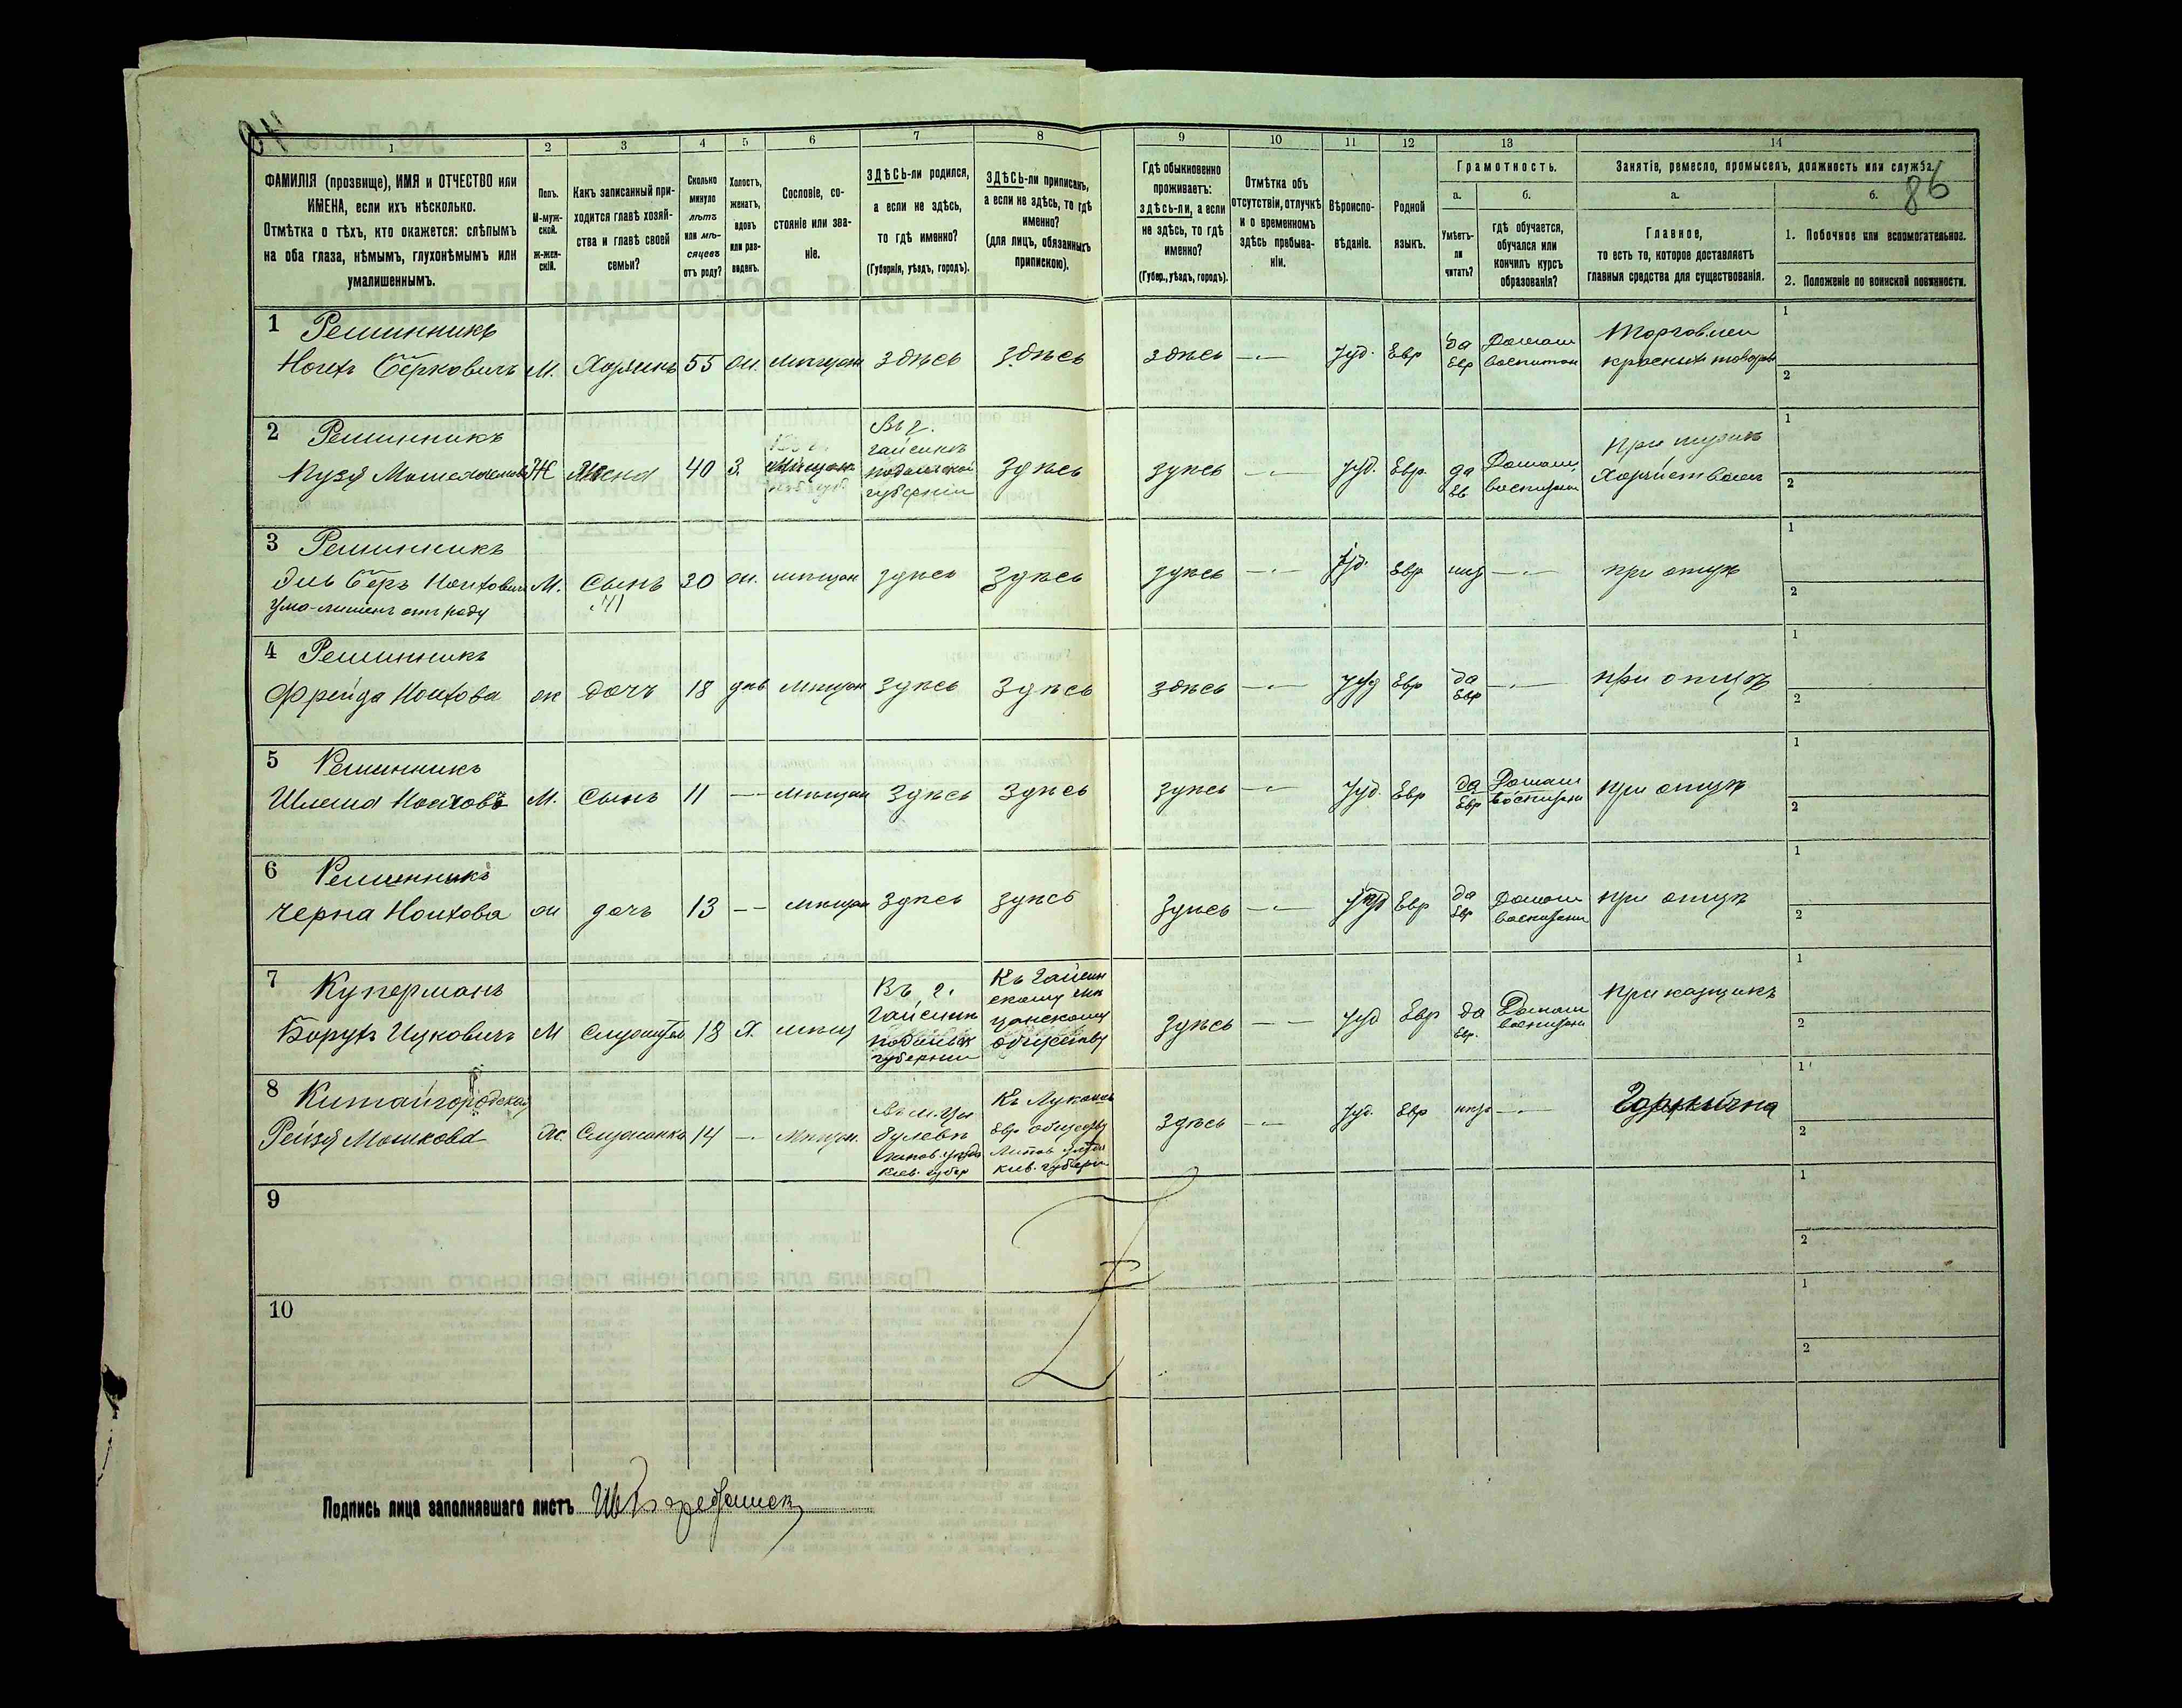 86
1 2 3 4 5 6 7 8 9 10 11 12 13 14
ФАМИЛІЯ (прозвище), ИМЯ и ОТЧЕСТВО или
ИМЕНА, если ихъ нѣсколько.
Отмѣтка о тѣхъ, кто окажется: слѣпымъ
на оба глаза, нѣмымъ, глухонѣмымъ или
умалишеннымъ.
Полъ.
М-муж-
ской.
ж-жен-
скій.
Какъ записанный при-
ходится главѣ хозяй-
ства и главѣ своей
семьи?
Сколько
минуло
лѣтъ
или мѣ-
сяцевъ
отъ роду?
Холостъ,
женатъ,
вдовъ
или раз-
веденъ.
Сословіе, со-
стояніе или зва-
ніе.
ЗДѢСЬ-ли родился,
а если не здѣсь,
то гдѣ именно?
(Губернія, уѣздъ, городъ).
ЗДѢСЬ-ли приписанъ,
а если не здѣсь, то гдѣ
именно?
(для лицъ, обязанныхъ
припискою).
Гдѣ обыкновенно
проживаетъ:
здѣсь-ли, а если
не здѣсь, то гдѣ
именно?
(Губер., уѣздъ, городъ).
Отмѣтка объ
отсутствіи, отлучкѣ
и о временномъ
здѣсь пребыва-
ніи.
Вѣроиспо-
вѣданіе.
Родной
языкъ.
Грамотность.
а.
Умѣетъ-
ли
читать?
б.
гдѣ обучается,
обучался или
кончилъ курсъ
образованія?
Занятіе, ремесло, промыселъ, должность или служба.
а.
Главное,
то есть то, которое доставляетъ
главныя средства для существованія.
б.
1. Побочное или вспомогательное.
2. Положеніе по воинской повинности.
1 Решинникъ
Ноихъ Берковичъ М. Хозяинъ 55 мѣщан здѣсь здѣсь здѣсь Іуд. Евр да Евр Домаш воспитан Торговлей красных товаръ
1
2
2 Решинникъ
Ж Жена 40 З. Въ г. Гайсинѣ Подольской губерніи здѣсь здѣсь Іуд. Евр. да Ев Домаш воспитан При мужѣ Хозяйством
1
2
3 Решинникъ
Эль Беръ Ноихович М. Сынъ 30 мѣщан здѣсь здѣсь здѣсь Іуд. Евр нѣт при отцѣ
умо-лишенъ отъ роду
1
2
4 Решинникъ
Фрейда Ноихова ж дочь 18 дѣв мѣщан здѣсь здѣсь здѣсь Іуд Евр да Евр при отцѣ
1
2
5 Решинникъ
Шлема Ноиховъ М. Сынъ 11 мѣщан здѣсь здѣсь здѣсь Іуд. Евр да Евр Домаш воспитан при отцѣ
1
2
6 Решинникъ
Черна Ноихова ж дочь 13 мѣщан здѣсь здѣсь здѣсь Іуд Евр да Евр Домаш воспитан при отцѣ
1
2
7 Куперманъ
Борухъ Ицковичъ М 18 Х. мѣщ Въ г. Гайсинѣ Подольск губерніи Къ Гайсин скому мѣ щанскому обществу здѣсь Іуд Евр да Евр. Домаш воспитан приказчикъ
1
2
8 Китайгородская
Рейзя Мошкова Ж. Служанка 14 мѣщан. Кіев. губер Евр обществу Липов уѣзда Кіев. губерн здѣсь Іуд. Евр нѣт Горнична
1
2
9
1
2
10
1
2
Подпись лица заполнявшаго листъ